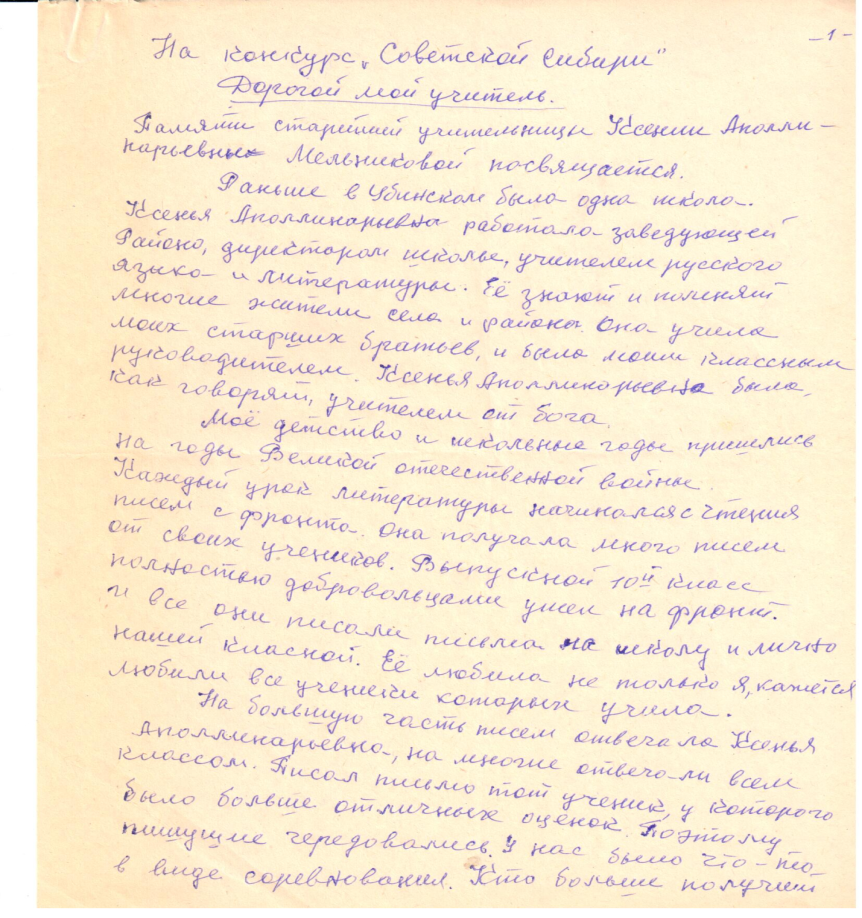 -1-
На конкурс „Советской Сибири"
Дорогой мой учитель.
Памяти старейшей учительницы Ксении Аполли-
нарьевны Мельниковой посвящается.
Раньше в Убинском была одна школа.
Ксенья Аполлинарьевна работала заведующей
Районо, директором школы, учителем русского
языка и литературы. Её знают и помнят
многие жители села и района. Она учила
моих старших братьев, и была моим классным
руководителем. Ксенья Аполлинарьевна была,
как говорят, учителем от бога.
Моё детство и школьные годы пришлись
на годы Великой отечественной войны.
Каждый урок литературы начинался с чтения
писем с фронта. Она получала много писем
от своих учеников. Выпускной 10й класс
полностью добровольцами ушел на фронт.
И все они писали письма на школу и лично
нашей класной. Её любила не только я, кажется
любили все ученики которых учила.
На большую часть писем отвечала Ксенья
Аполлинарьевна, на многие отвечали всем
классом. Писал письмо тот ученик, у которого
было больше отличных оценок. Поэтому
пишущие чередовались. У нас было что-то
в виде соревнования. Кто больше получит